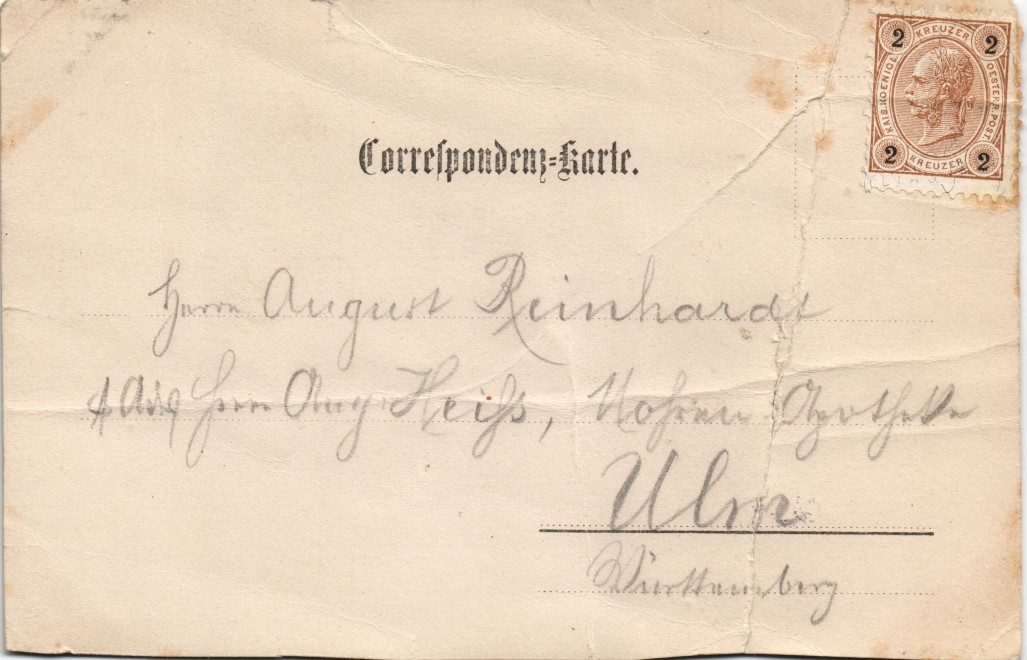 2 KREUZER 2
KAIS. KOENIGL. OESTERR. POST
2 KREUZER 2
Correspondenz-Karte.
Herrn August Reinhardt
Herrn Aug. Heiss, Mohren Apotheke
Ulm
Württemberg